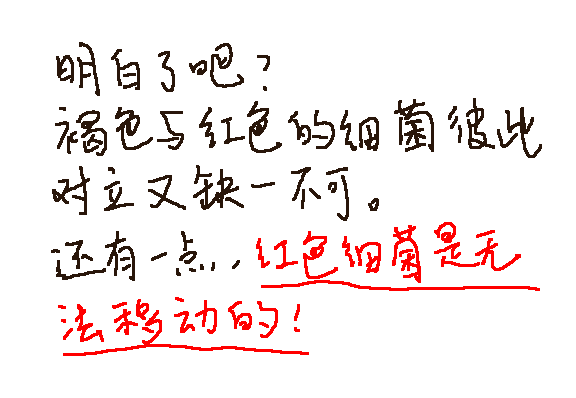 明白了吧?
褐色与红色的细菌彼此
对立又缺一不可。
还有一点,红色细菌是无
法移动的!